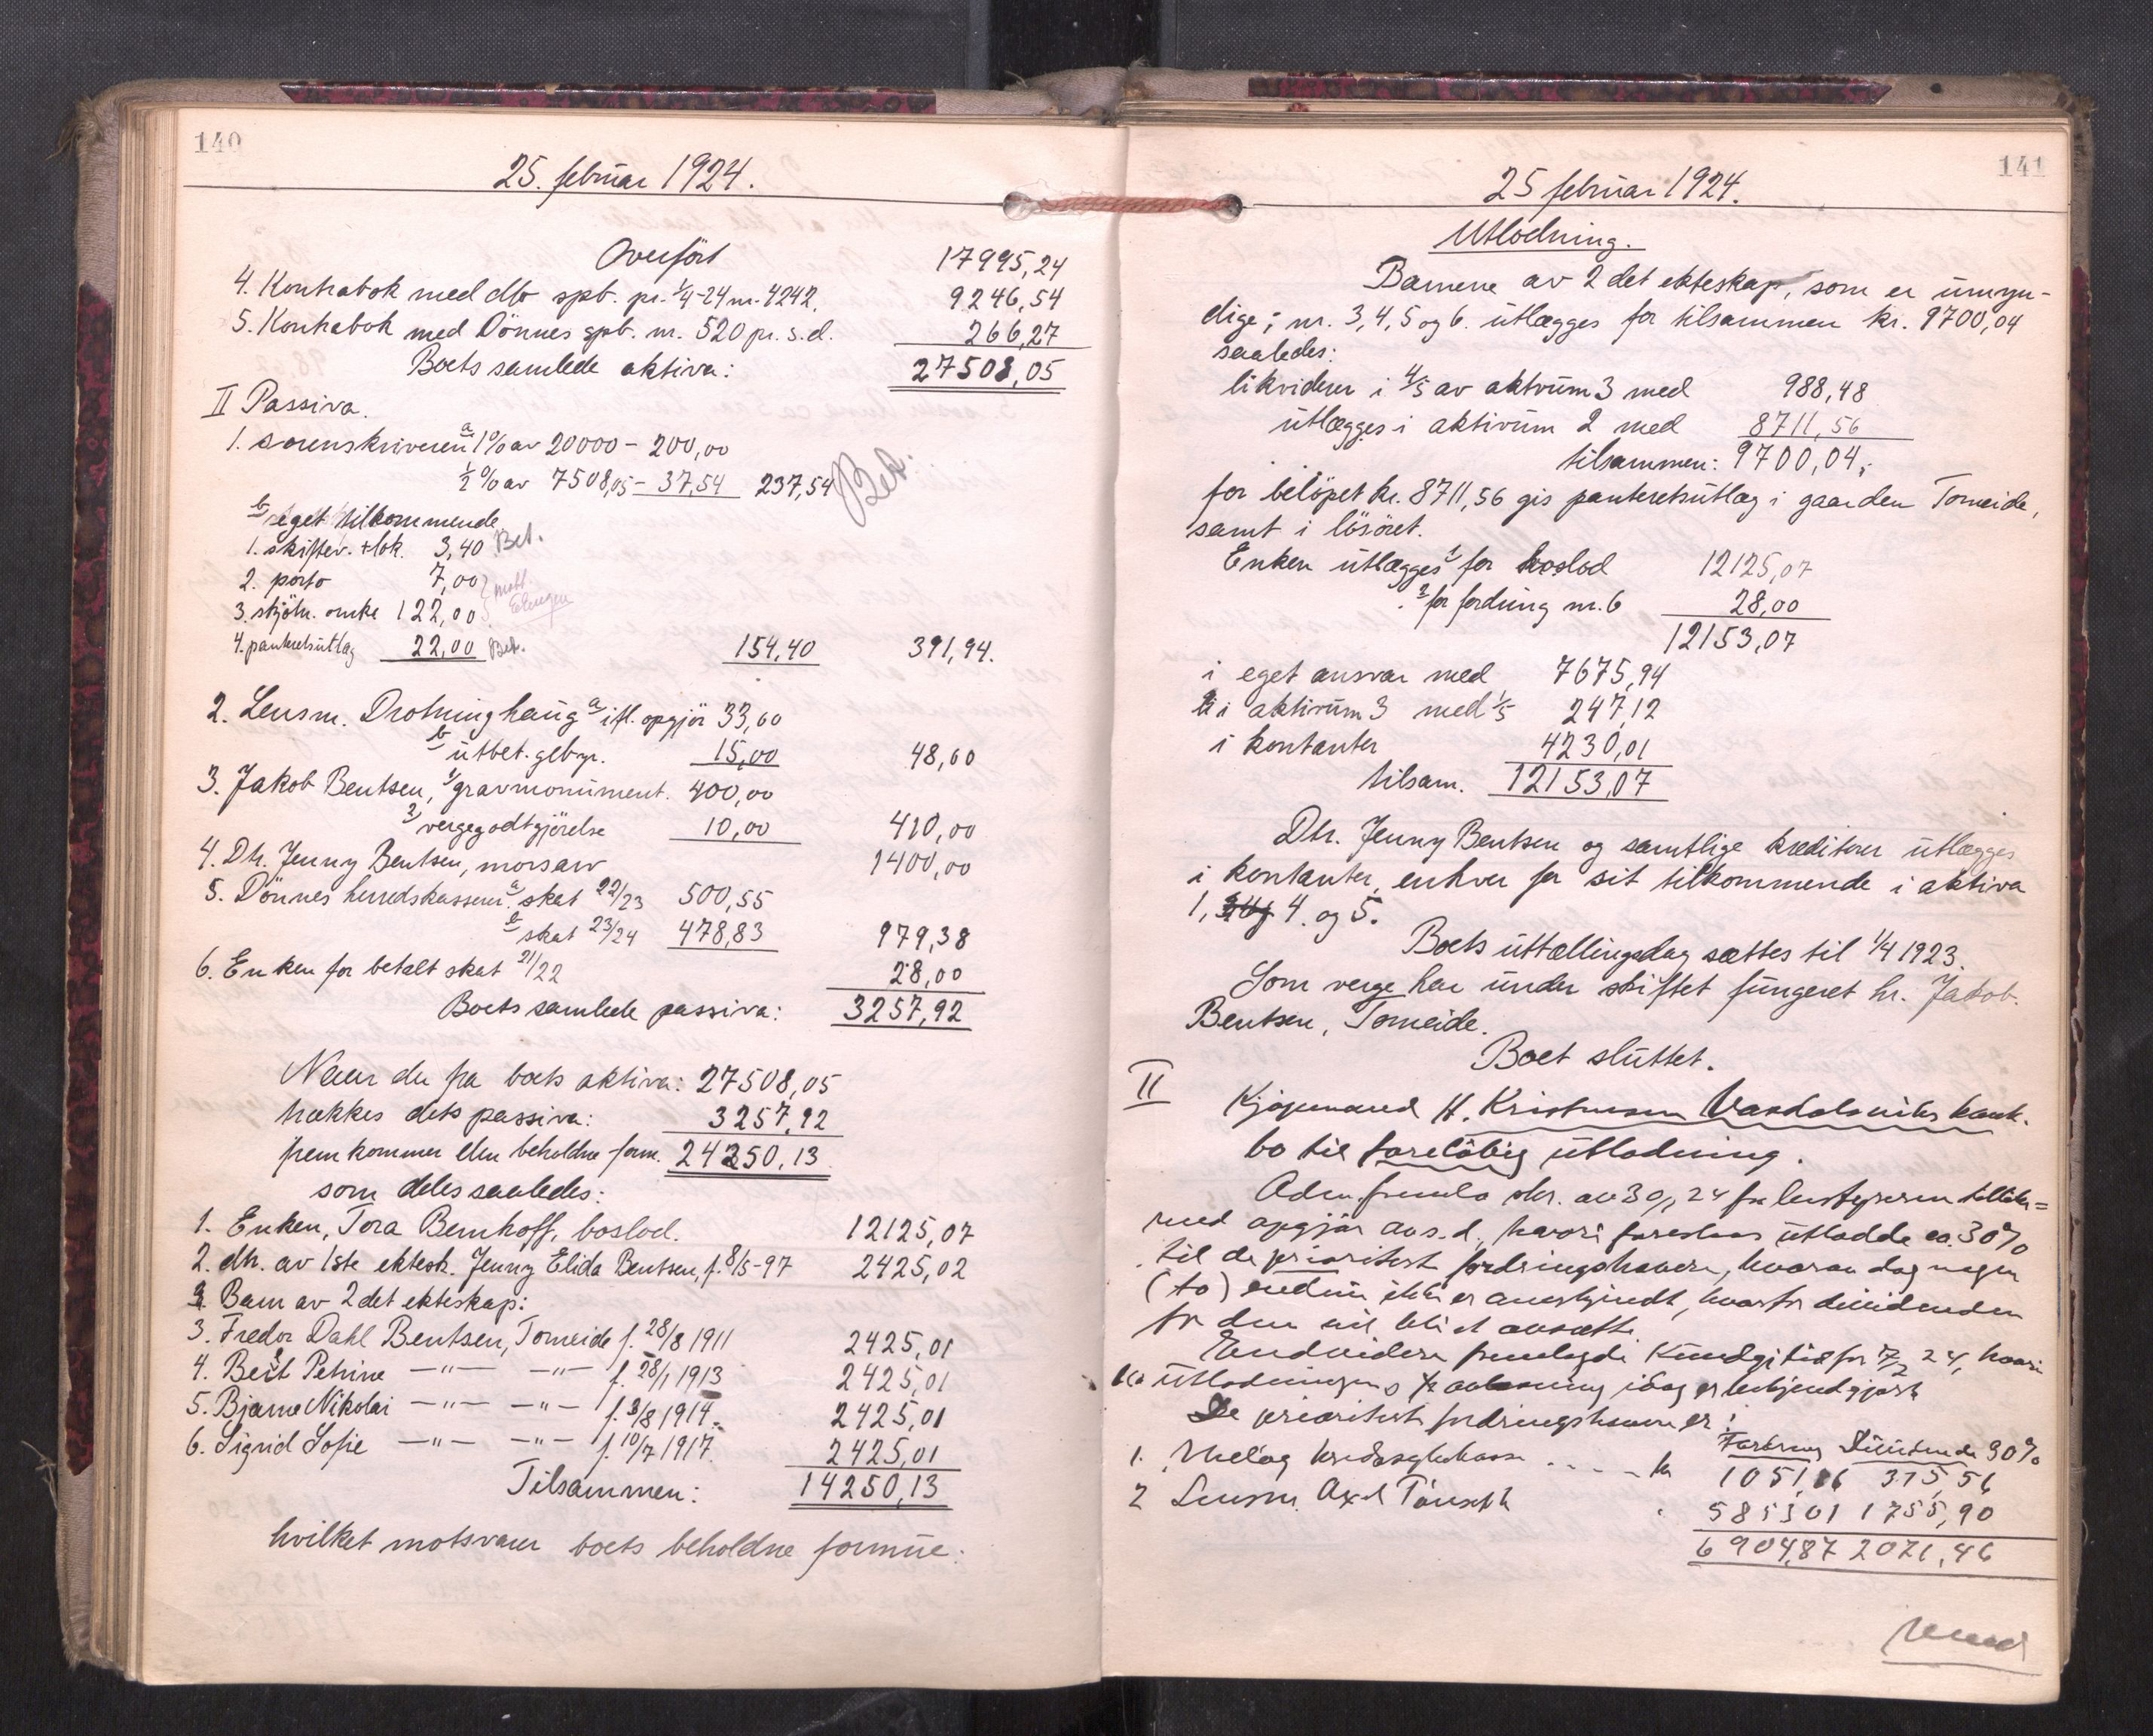 140
25. februar 1924.
Overført 17995,24
4. Kontrabok med dto spb. pr. 1/4-24 nr. 4242. 9246,54
5. Kontrabok med Dönnes spb. nr. 520 pr. s.d. 266,27
Boets samlede aktiva: 27508,05
II Passiva.
1. sorenskriveren a 1% av 20000 - 200,00
½ % av 7508,05 - 37,54 237,54 Bet.
b eget tilkommende
1. skifter. + lok. 3,40 Bet.
2. porto 7,00
3. skjöte. omke 122,00
4. panteretsutlag 22,00 Bet. 154,40 391,94.
2. Lensm. Drotninghaug a ifl. opgjör 33,60
b utbet. gebyr. 15,00 48,60
3. Jakob Bentsen, 1) gravmonument. 400,00
2) vergegodtgjörelse 10,00 410,00
4. Dtr. Jenny Bentsen, morsarv 1400,00
5. Dönnes herredskasserer a. skat 22/23 500,55
b skat 23/24 478,83 979,38
6. Enken for betalt skat 21/22 28,00
Boets samlede passiva: 3257,92
Naar der fra boets aktiva: 27508,05
trækkes dets passiva: 3257,92
fremkommer den beholdne form. 24250,13
som deles saaledes:
1. Enken, Tora Bernhoff, boslod. 12125,07
2. dtr. av 1ste ektesk. Jenny Elida Bentsen, f. 8/5-97 2425,02
Barn av 2det ekteskap:
3. Fredor Dahl Bentsen, Tomeide f. 28/8 1911 2425,01
4. Berit Petrine —"— —"— f. 28/1 1913 2425,01
5. Bjarne Nikolai —"— —"— f. 3/8 1914. 2425,01
6. Sigrid Sofie —"— —"— f. 10/7 1917. 2425,01
Tilsammen: 14250,13
hvilket motsvarer boets beholdne formue:
141
25 februar 1924.
Utlodning.
Barnene av 2det ekteskap, som er umyn-
dige; nr. 3, 4, 5 og 6. utlægges for tilsammen kr. 9700,04
saaledes:
likviderer i 4/5 av aktivum 3 med 988,48
utlægges i aktivum 2 med 8711,56
tilsammen: 9700,04;
for belöpet kr. 8711,56 gis panteretsutlæg i gaarden Tomeide,
samt i lösöret.
Enken utlægges 1) for boslod 12125,07
2) for fordring nr. 6 28,00
12153,07
i eget ansvar med 7675,94
i aktivum 3 med 1/5 247,12
i kontanter 4230,01
tilsam. 12153,07
Dtr. Jenny Bentsen og samtlige kreditorer utlægges
i kontanter, enhver for sit tilkommende i aktiva
1, 4. og 5.
Boets uttællingsdag sættes til 1/4 1923.
Som verge har under skiftet fungeret hr. Jakob
Bentsen, Tomeide.
Boet sluttet.
II Kjøpmand H. Kristensen Vandalsvikes konk.
bo til foreløbig utlodning.
Adm. fremla skr. av 30/1 24 fra bestyreren tillike-
med opgjør av s. d., hvori foreslaas utlodde ca. 30%
til de prioritert fordringshavere, hvorav dog nogen
(to) endnu ikke er anerkjendt, hvorfor dividenden
for dem vil bli at avsætte.
Endvidere fremlagdes Kundgjørelse for 7/2 24, hvori
utlodningens avslutning idag er bekjendtgjort
De prioritert fordringshavere er:
Fordring Dividende 30%
1. Meløy kredsykekasse . . . . kr 1051,86 315,56
2 Lensm. Axel 585301 1755,90
6904,87 2071,46